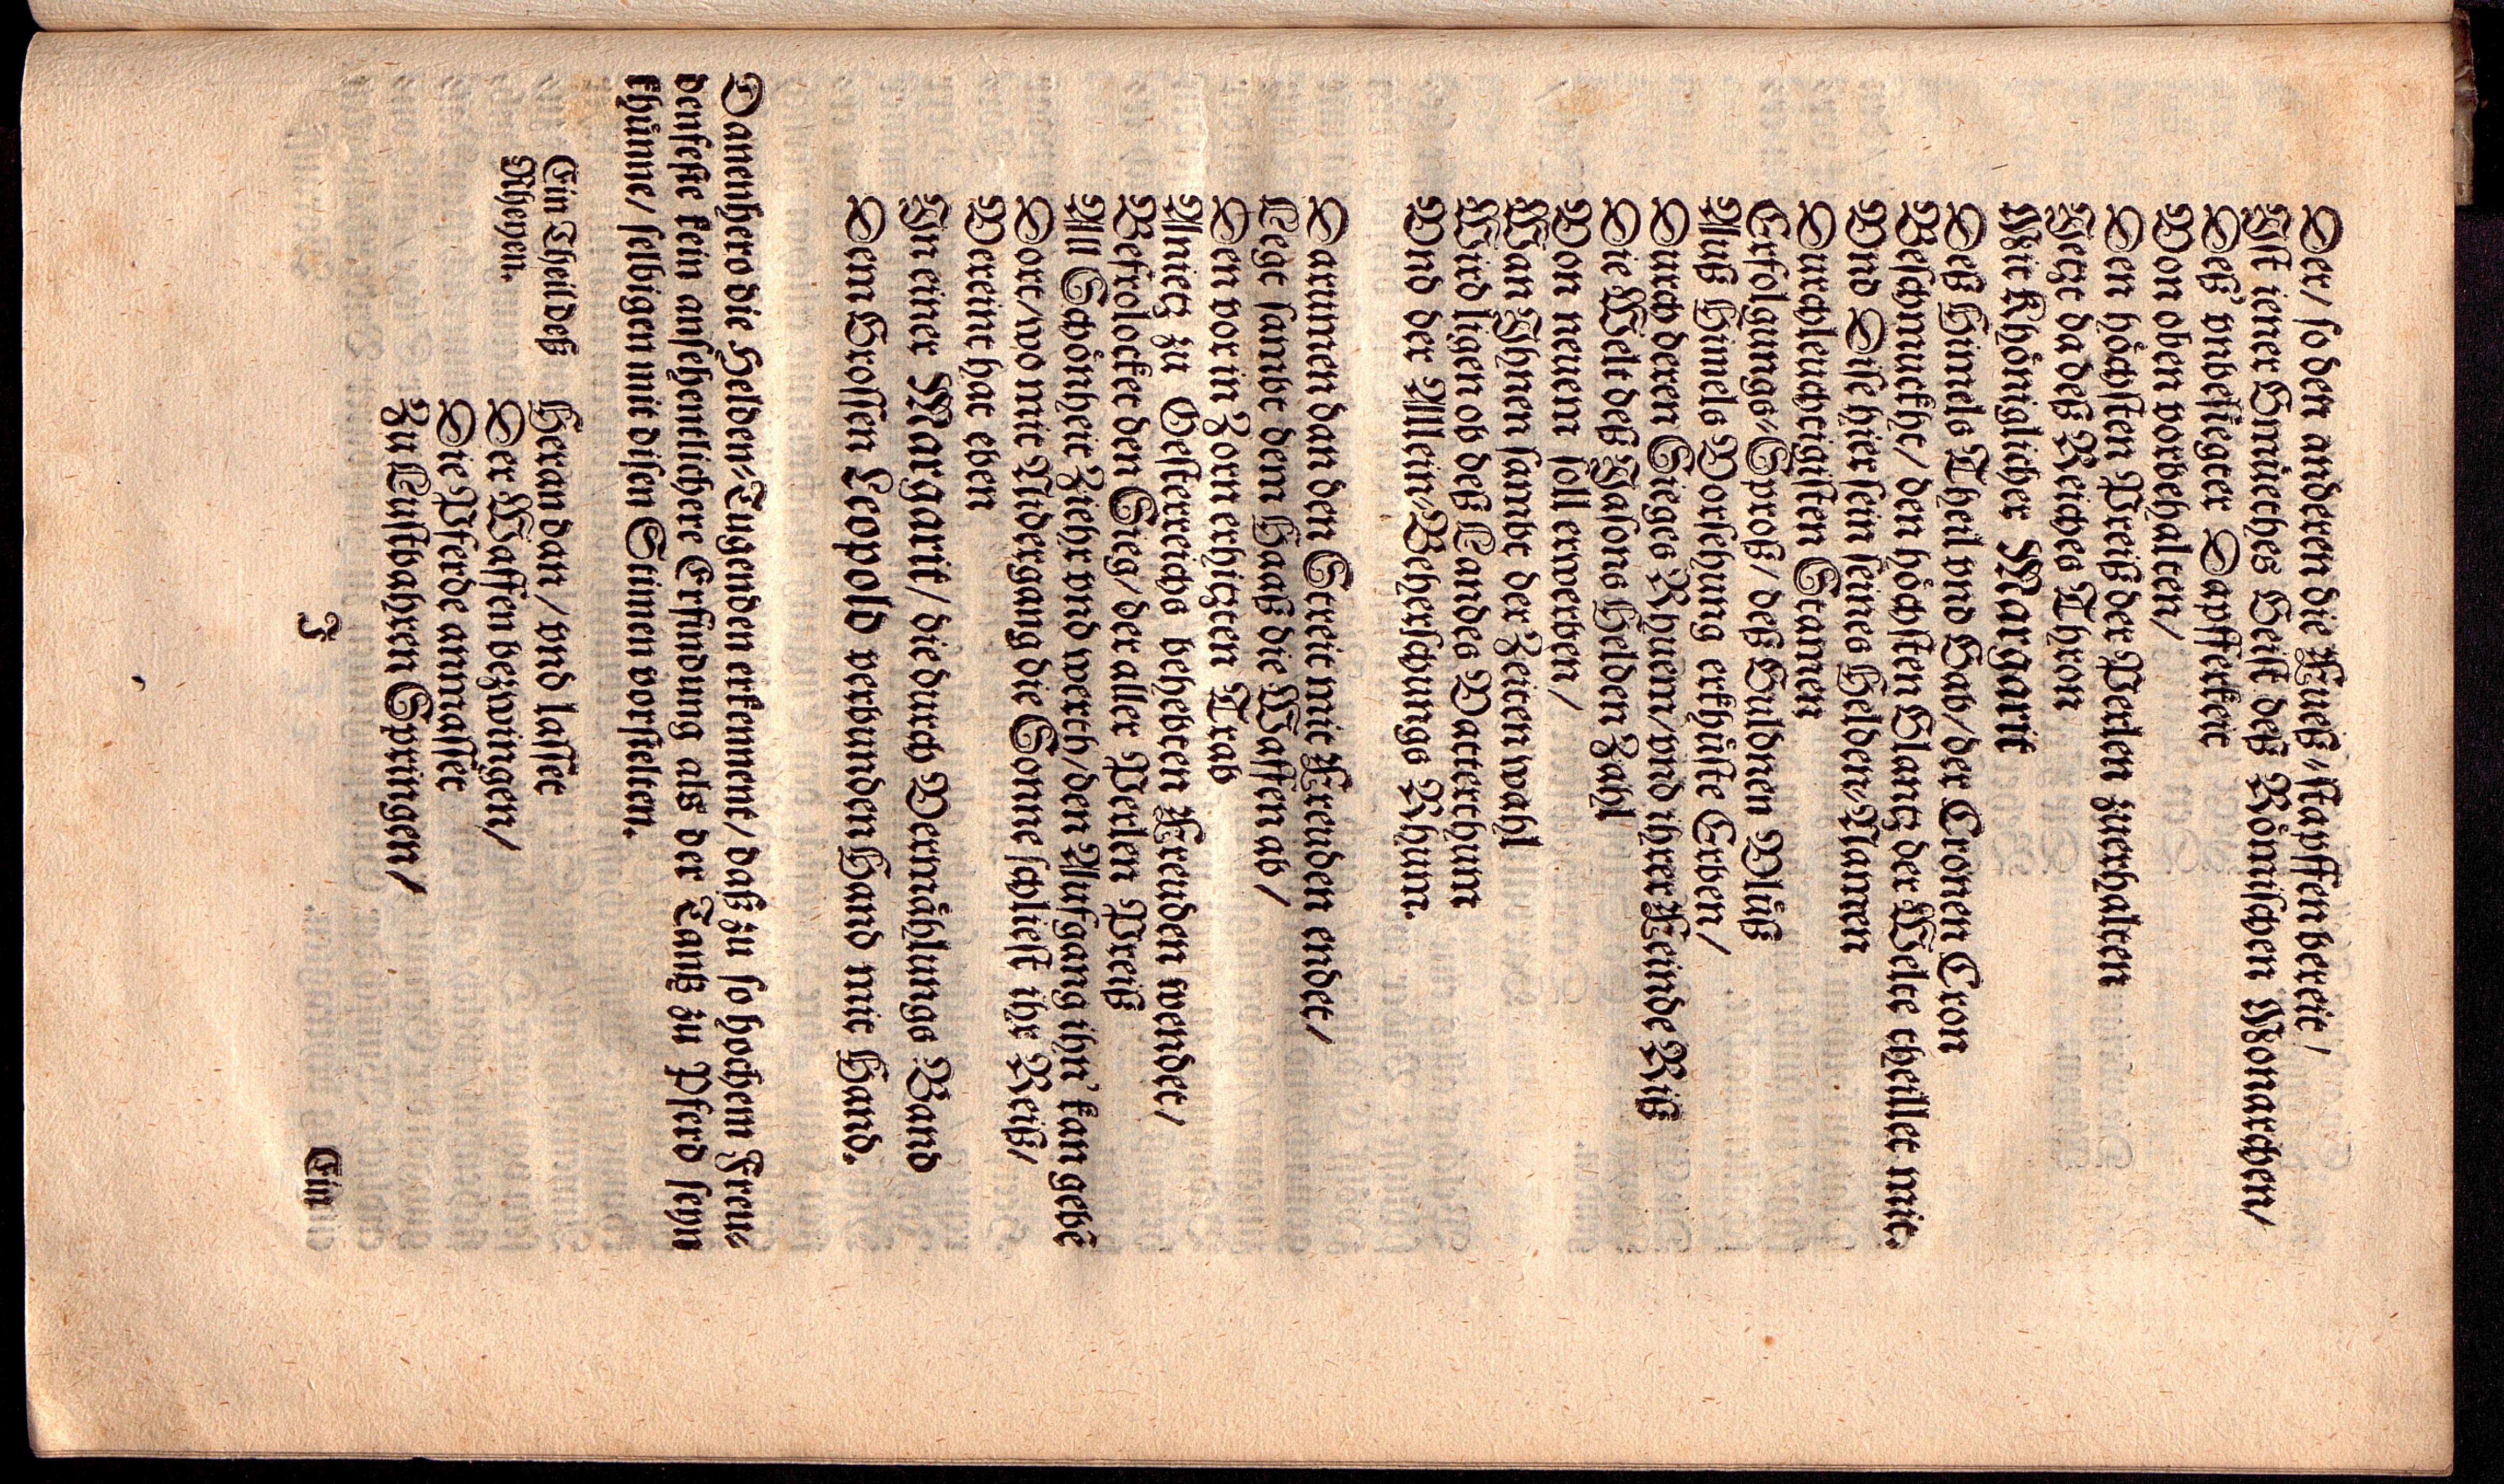 Der/ so den anderen die Fueß-stapffen bereit/
Ist iener Grmüthes Geist deß Römischen Monarchen/
Deß vnbesiegter Dapfferkeit
Von oben vorbehalten/
Den höchsten Preiß der Perlen zuerhalten
Jetzt da deß Reiches Thron
Mit Khöniglicher Margarit
Deß Himels Theil vnd Gab/ der Cronen Cron
Beschmuckht/ den höchsten Glantz der Welte theillet mit.
Vnd Dise hier sein seines Helden-Namen
Durchleuchtigisten Stamen
Erfolgungs-Sproß/ deß Guldnen Vluß
Auß Himels Vorsehung erkhüste Erben/
Durch deren Sieges Rhuem/ vnd ihrer Feinde Riß
Die Welt deß Jasons Helden Zahl
Von neuem soll erwerben/
Wan Ihnen sambt der Zeiten wahl
Wird ligen ob deß Landes Vatterthum
Vnd der Allein-Beherschungs Rhum.
Darumen dan den Streit mit Freuden endet/
Legt sambt dem Haaß die Waffen ab/
Den vor in Zorn erhitzten Trab
Anietz zu Oesterreichs beheben Freuden wendet/
Befrolocket den Sieg/ der aller Perlen Preiß
All Schönheit Ziehr vnd werth/ den Aufgang ihn' kan gebē
Dort/ wo mit Nidergang die Sonne schliest ihr Reiß/
Vereint hat eben
In einer Margarit/ die durch Vermählungs Band
Dem Grossen Leopold verbunden Hand mit Hand.
Danenhero die Helden-Tugenden erkennent/ daß zu so hochem Freu-
denfeste kein ansehentlichere Erfindung als der Tantz zu Pferd seyn
khünne/ selbigen mit disen Stimen vorstelten.
Ein Theil deß
Rheyen.
Heran dan/ vnd lasset
Der Waffen bezwingen/
Die Pferde anmasset
Zu Lustbahren Springen/
J
Ein